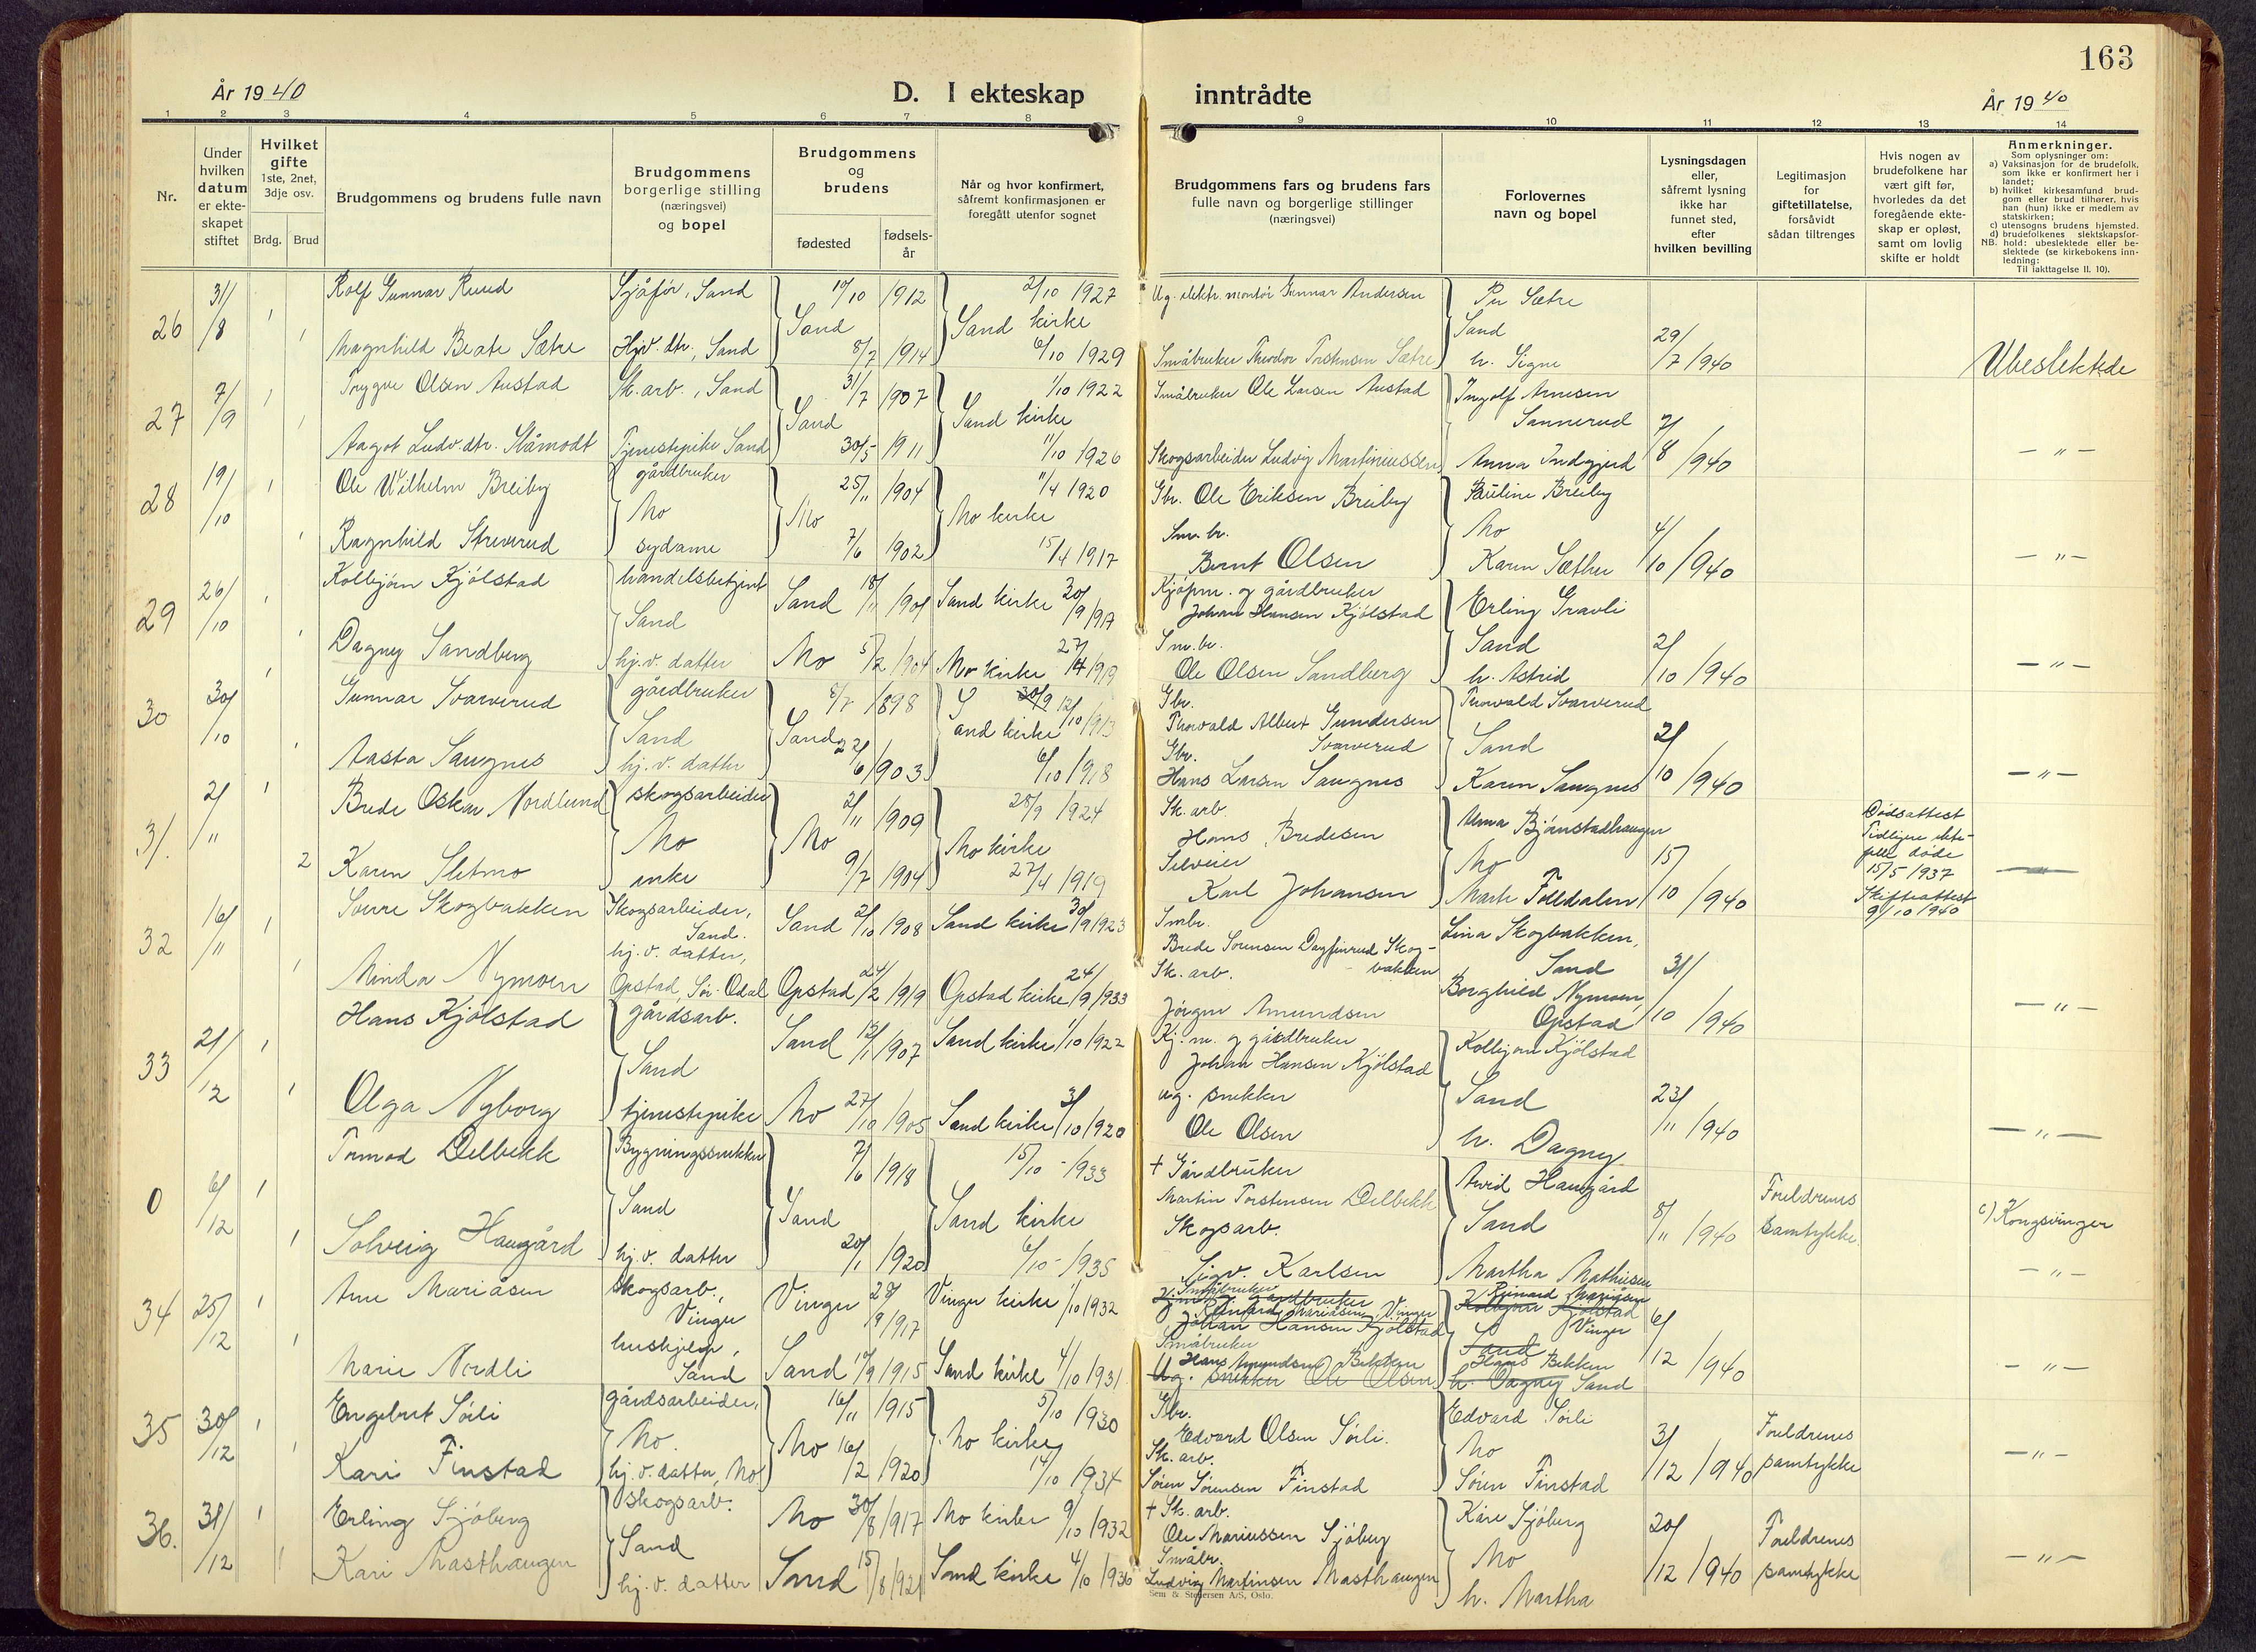 163
År 1940
D. I ekteskap inntrådte
År 1940
1 2 3 4 5 6 7 8 9 10 11 12 13 14
Nr.
Under hvilken datum er ekte-skapet stiftet
Hvilket gifte 1ste, 2net, 3dje osv.
Brdg. Brud
Brudgommens og brudens fulle navn
Brudgommens borgerlige stilling (næringsvei) og bopel
Brudgommens og brudens
fødested
fødsels-år
Når og hvor konfirmert, såfremt konfirmasjonen er foregått utenfor sognet
Brudgommens fars og brudens fars fulle navn og borgerlige stillinger (næringsvei)
Forlovernes navn og bopel
Lysningsdagen eller, såfremt lysning ikke har funnet sted, efter hvilken bevilling
Legitimasjon for giftetillatelse, forsåvidt sådan tiltrenges
Hvis nogen av brudefolkene har vært gift før, hvorledes da det foregående ekte-skap er opløst, samt om lovlig skifte er holdt
Anmerkninger.
Som oplysninger om:
a) Vaksinasjon for de brudefolk, som ikke er konfirmert her i landet;
b) hvilket kirkesamfund brud-gom eller brud tilhører, hvis han (hun) ikke er medlem av statskirken;
c) utensogns brudens hjemsted.
d) brudefolkenes slektskapsfor-hold: ubeslektede eller be-slektede (se kirkebokens inn-ledning:
NB. Til iakttagelse II. 10).
26 31/8 1 Rolf Gunnar Ruud Sjåfør, Sand 19/10 1912 2/10 1927 Ug. elektr. montør Gunnar Andersen Per Sætre
Sand Sand kirke Sand
1 Magnhild Beate Sætre Hj.v. dtr., Sand 8/7 1914 6/10 1929 Småbruker Theodor Torstensen Sætre h. Signe 29/7 1940 Ubeslektede
27 7/9 1 Trygve Olsen Austad Sk.arb., Sand 31/7 1907 1/10 1922 Småbruker Ole Larsen Austad Ingolf Arnesen
Sand Sand kirke Sannerud
1 Aagot Ludv.dtr. Slåmodt Tjenestepike Sand 30/5 1911 11/10 1926 Skogsarbeider Ludvig Martiniussen Anna Indgjerd 7/8 1940 -"-
28 19/10 1 Ole Wilhelm Breiby gårdbruker 25/11 1904 11/4 1920 Gbr. Ole Eriksen Breiby Pauline Breiby
Mo Mo Mo kirke Sm.br. Mo
1 Ragnhild Streverud sydame 7/6 1902 15/4 1917 Bernt Olsen Karen Sæther 4/10 1940 -"-
29 26/10 1 Kolbjørn Kjølstad handelsbetjent Sand 18/11 1901 Sand kirke 30/9 1917 Kjøpm. og gårdbruker
Johan Hansen Kjølstad Erling Gravli
Sand Sm.br. Sand
1 Dagny Sandberg hj.v. datter Mo 5/2 1904 Mo kirke 27/4 1919 Ole Olsen Sandberg h. Astrid 2/10 1940 -"-
30 30/10 1 Gunnar Svarverud gårdbruker 8/7 1898 30/9 12/10 1913 Gbr.
Thorvald Albert Gundersen Svarverud Thorvald Svarverud
Sand Sand Sand kirke Gbr. Sand
1 Aasta Saugnes hj.v. datter 22/6 1903 6/10 1918 Hans Larsen Saugnes Karen Saugnes 2/10 1940 -"-
31. 2/11 1 Brede Oskar Nordlund skogsarbeider 2/11 1909 28/9 1924 Sk.arb.
Hans Bredesen Anna Bjørnstadhaugen
Mo Mo Mo kirke Selveier Mo
2 Karen Sletmo enke 9/7 1904 27/4 1919 Karl Johansen Marte Folldalen 15/10 1940 Dødsattest
Tidligere ekte-
felle døde
15/5 1937
Skifteattest
9/10 1940
32 16/11 1 Sverre Skogbakken Skogsarbeider, Sand. Sand 2/10 1908 Sand kirke 30/9 1923 Smbr.
Brede Sørensen Dagfinrud Skog-bakken Lina Skogbakken, Sand
1 Minda Nymoen hj.v. datter, Opstad, Sør-Odal Opstad 24/2 1919 Opstad kirke 24/9 1933 Sk.arb.
Jørgen Amundsen Borghild Nymoen, Opstad 31/10 1940 -"-
33 21/12 1 Hans Kjølstad gårdsarb. Sand 13/1 1907 Sand kirke 1/10 1922 Kj.m. og gårdbruker
Johan Hansen Kjølstad Kolbjørn Kjølstad
Sand Sand
1 Olga Nyborg tjenestepike Mo 27/10 1905 Sand kirke 3/10 1920 ug. snekker
Ole Olsen h. Dagny 23/11 1940 -"-
0 6/12 1 Tormod Delbekk Bygningssnekker 7/6 1918 15/10 1933 + Gårdbruker
Martin Torstensen Delbekk Arvid Haugård
Sand Sand Sand kirke Skogsarb. Sand 8/11 1940 Foreldrenes samtykke. c) Kongsvinger
1 Solveig Haugård hj.v. datter 20/1 1920 6/10 1935 Sigv. Karlsen Martha Mathisen -"-
34 25/12 1 Arne Mariåsen skogsarb., Vinger Vinger 28/9 1917 Vinger kirke 1/10 1932 Småbruker
Kj.m. og gårdbruker
Reinhard Mariåsen, Vinger
Johan Hansen Kjølstad Reinard Mariåsen
Kolbjørn Kjølstad
Vinger
1 Marie Nordli hushjelp, Sand Sand 19/9 1915 Sand kirke 4/10 1931 Småbruker
Hans Amundsen Bekken
Ug. snekker Ole Olsen Sand
Hans Bekken
h. Dagny Sand 6/12 1940 -"-
35 30/12 1 Engebret Sørli gårdsarbeider, 16/11 1915 5/10 1930 Gbr.
Edvard Olsen Sørli. Edvard Sørli
Mo. Mo Mo kirke Sk.arb. Mo
1 Kari Finstad hj.v. datter, Mo 16/2 1920 14/10 1934 Søren Sørensen Finstad Søren Finstad 3/12 1940 Foreldrenes samtykke -"-
36. 31/12 1 Erling Sjøberg skogsarb. Mo 30/8 1917 Mo kirke 9/10 1932 + Sk.arb.
Ole Mariussen Sjøberg Kåre Sjøberg
Sand Småbr. Mo
1 Kari Masthaugen hj.v. datter Sand 15/8 1921 Sand kirke 4/10 1936 Ludvig Martinsen Masthaugen h. Martha 20/12 1940 Foreldrenes samtykke -"-
Sem & Stenersen A/S, Oslo.